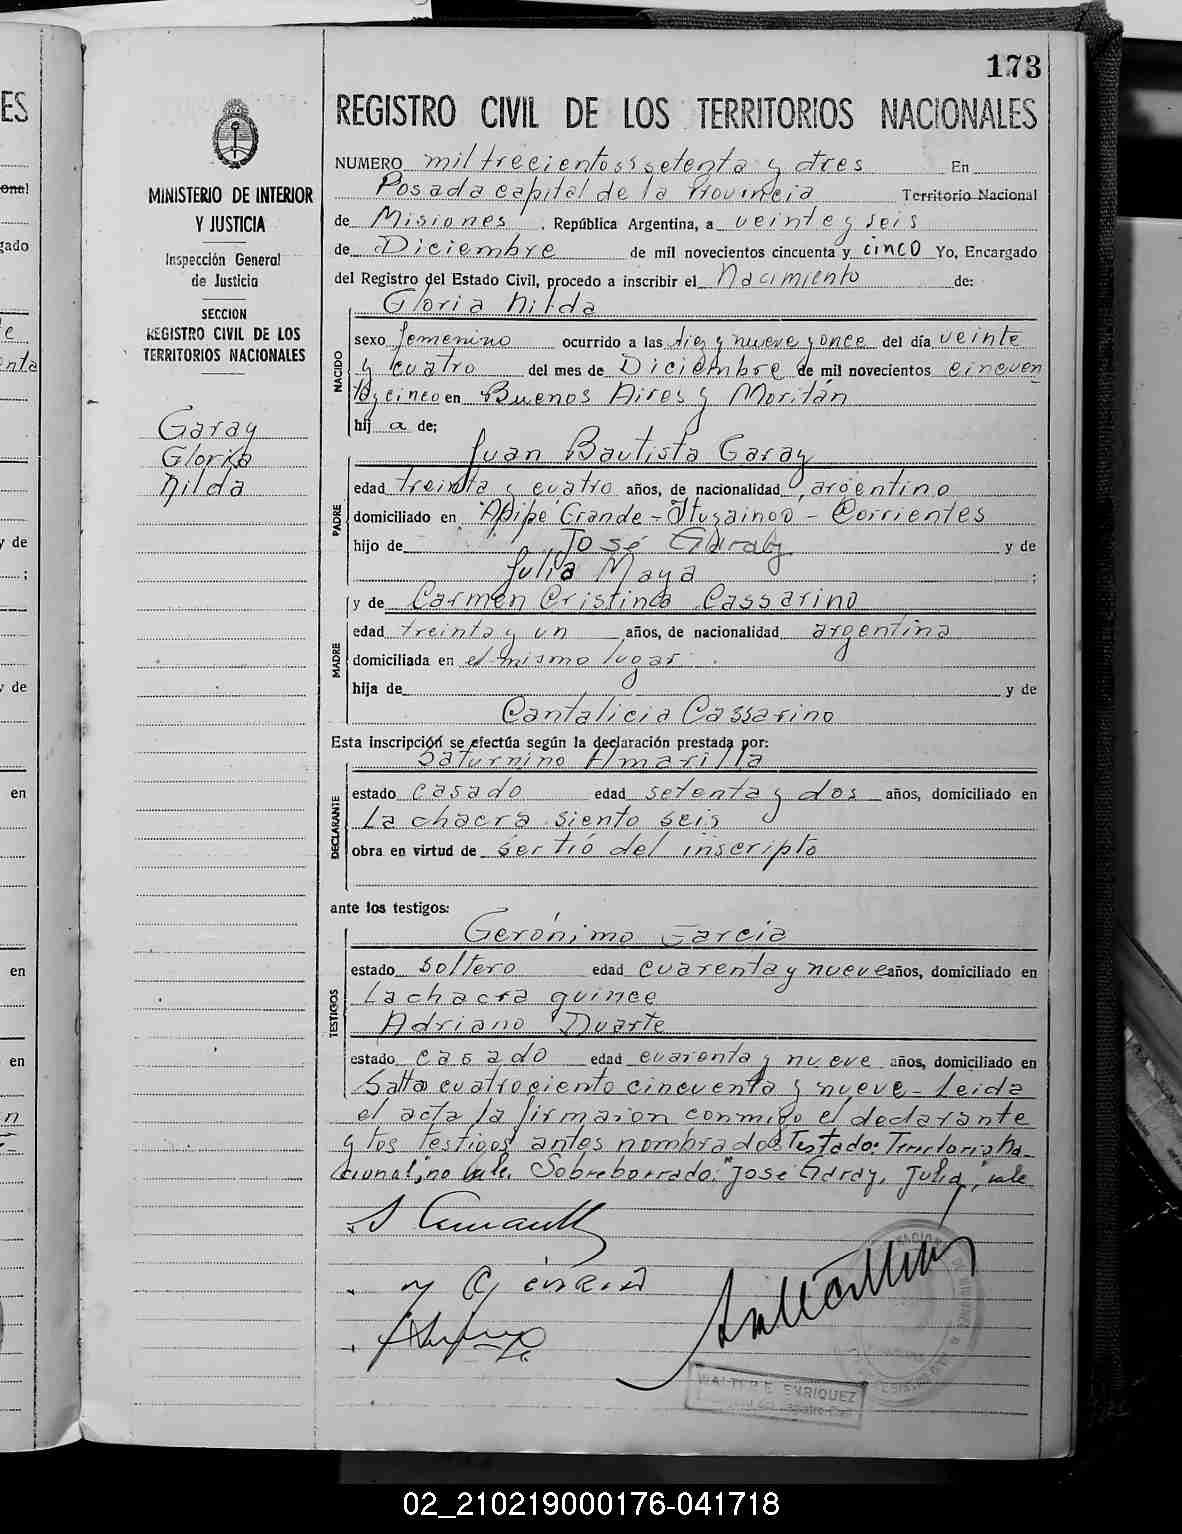 173
REGISTRO CIVIL DE LOS TERRITORIOS NACIONALES
MINISTERIO DE INTERIOR
Y JUSTICIA
Inspección General
de Justicia
SECCION
REGISTRO CIVIL DE LOS
TERRITORIOS NACIONALES
Garay
Gloria
Nilda
NUMERO mil trecientos setenta y tres En
Posada capital de la Provincia Territorio Nacional
de Misiones, República Argentina, a veinte y seis
de Diciembre de mil novecientos cincuenta y cinco Yo, Encargado
del Registro del Estado Civil, procedo a inscribir el Nacimiento de:
Gloria Nilda
NACIDO
sexo femenino ocurrido a las diez y nueve y once del día veinte
y cuatro del mes de Diciembre de mil novecientos cincuen-
ta y cinco en Buenos Aires y Moritán
hij a de;
Juan Bautista Garay
PADRE
edad treinta y cuatro años, de nacionalidad argentino
domiciliado en Apipé Grande - Ituzaingo - Corrientes
hijo de José Garay y de
Julia Maya ;
y de Carmen Cristina Cassarino
MADRE
edad treinta y un años, de nacionalidad argentina
domiciliada en el mismo lugar.
hija de y de
Cantalicia Cassarino
Esta inscripción se efectúa según la declaración prestada por:
Saturnino Amarilla
DECLARANTE
estado casado edad setenta y dos años, domiciliado en
La chacra siento seis
obra en virtud de ser tió del inscripto
ante los testigos:
Gerónimo Garcia
TESTIGOS
estado soltero edad cuarenta y nueve años, domiciliado en
La chacra quince
Adriano Duarte
estado casado edad cuarenta y nueve años, domiciliado en
Salta cuatrociento cincuenta y nueve - Leida
el acta la firmaron conmigo el declarante
y los testigos antes nombrados Testado: "Territorio Na-
cional", no vale. Sobreborrado: "José Garay, Julia", vale
WALTER E. ENRIQUEZ
02_210219000176-041718